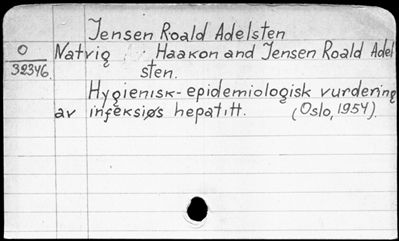 Jensen Roald Adelsten
O Natvig Haakon and Jensen Roald Adel
32346. sten.
Hygienisk-epidemiologisk vurdering
av infeksiøs hepatitt. (Oslo, 1954).